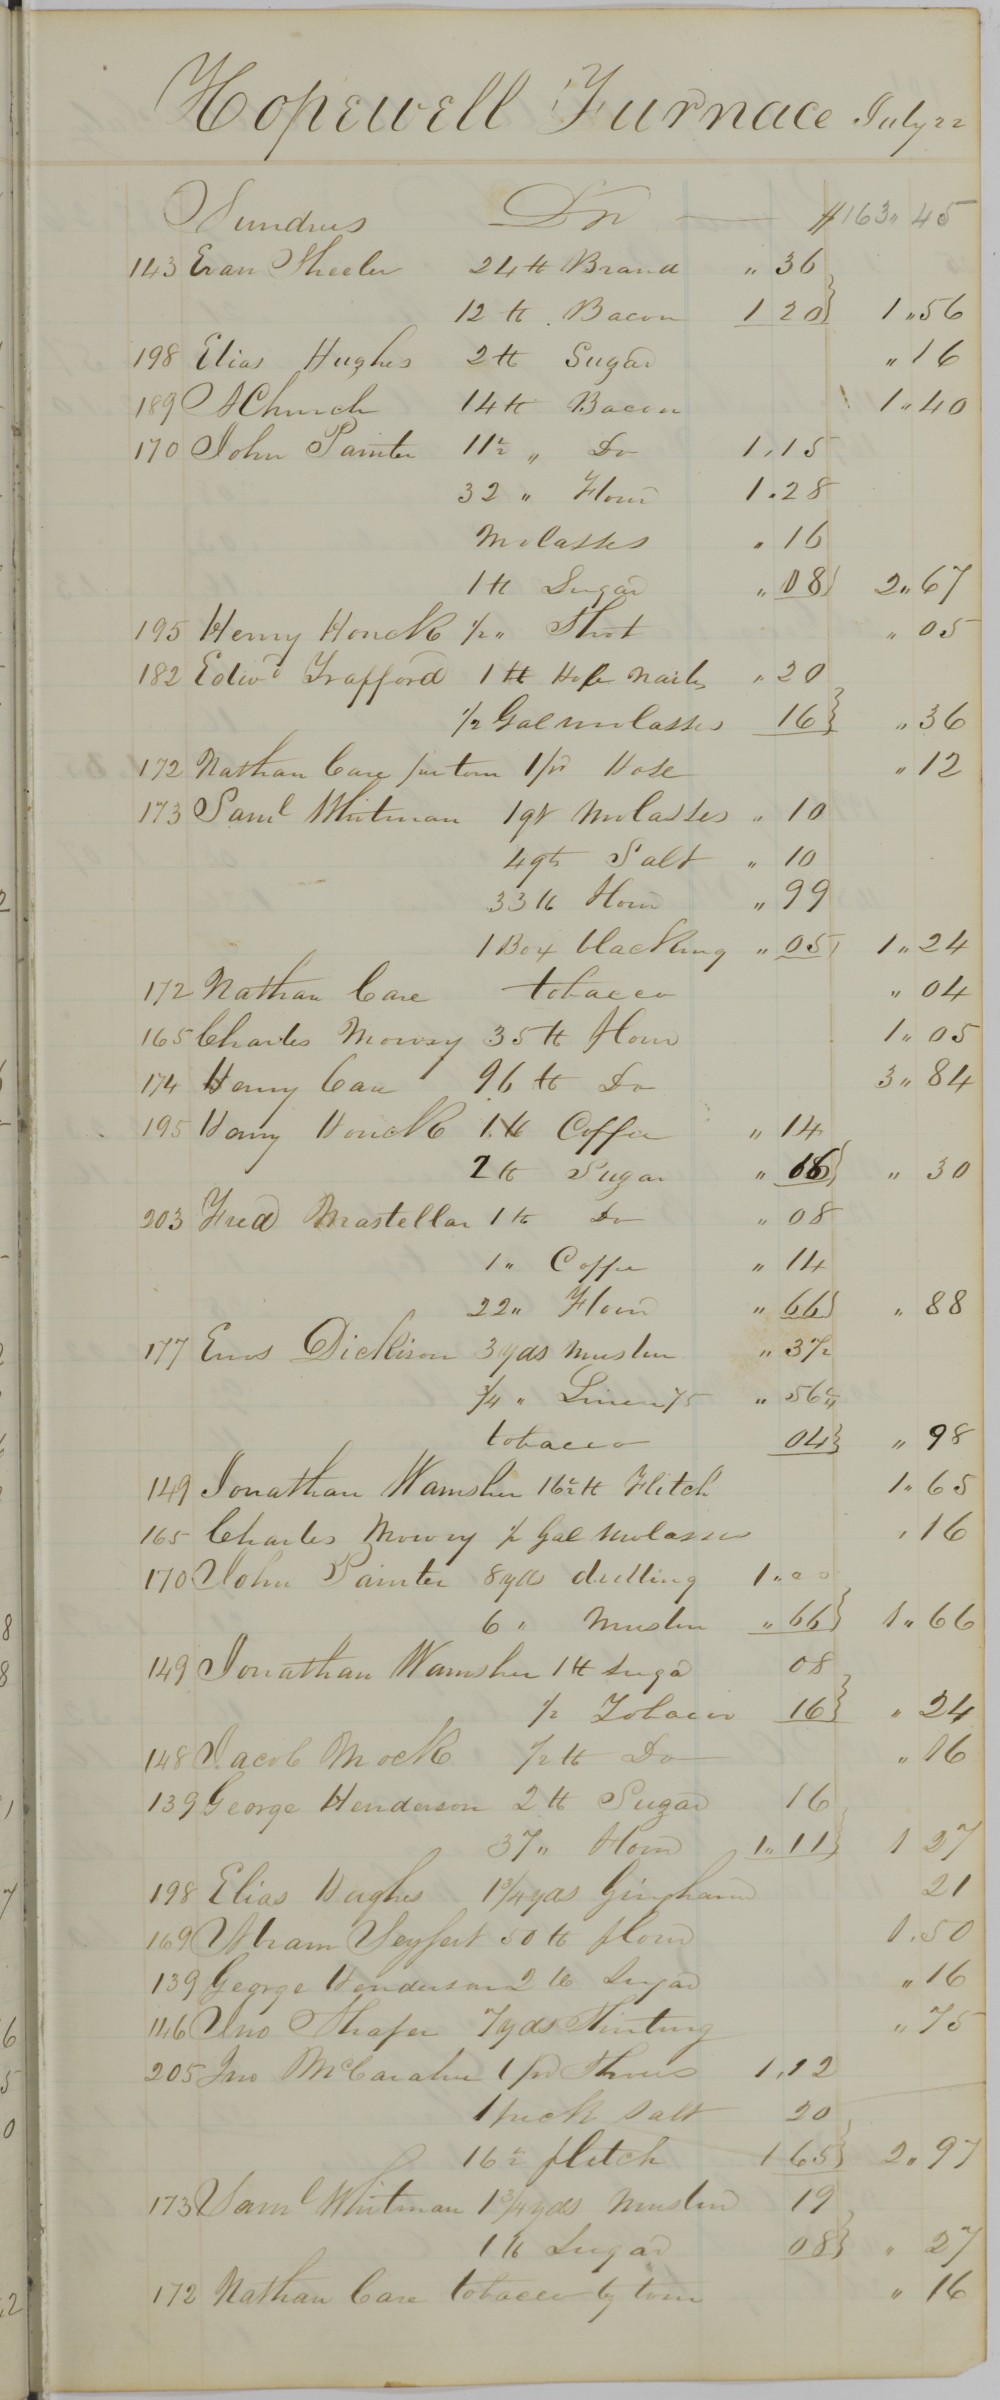 Hopewell Furnace July 22
Sundries Dr $163" 45
143 Evan Sheeler 24 ℔ Brand " 36
12 ℔ Bacon 1 20} 1 " 56
198 Elias Hughes 2 ℔ Sugar " 16
189 A Church 14 ℔ Bacon 1 " 40
170 John Painter 11½ " Do 1.15
32 " Flour 1.28
Molasses " 16
1 ℔ Sugar " 08} 2 " 67
195 Henry Houck ½ " Shot " 05
182 Edwd Trafford 1 ℔ Nails " 20
½ Gal molasses 16} " 36
172 Nathan Care per tom 1 pr Hose " 12
173 Saml Whitman 1 qt Molasses " 10
4 qts Salt " 10
33 ℔ Flour " 99
1 Box blacking " 05} 1 " 24
172 Nathan Care tobacco " 04
165 Charles Mowry 35 ℔ flour 1 " 05
174 Henry Care 96 ℔ Do 3 " 84
195 Henry Houck 1 ℔ Coffee " 14
2 ℔ Sugar " 16} " 30
203 Fred Mastellar 1 ℔ Do " 08
1 " Coffee " 14
22 " Flour " 66} " 88
177 Enos Dickison 3 yds Muslin " 37½
¾ " Linen 75 " 56½
tobacco 04} " 98
149 Jonathan Wamsher 16½ ℔ Flitch 1 " 65
165 Charles Mowry ½ Gal Molasses " 16
170 John Painter 8 yds drilling 1 " 00
6 " Muslin " 66} 1 " 66
149 Jonathan Wamsher 1 ℔ Sugar 08
½ Tobacco 16} " 24
148 Jacob Mock ½ ℔ Do " 16
139 George Henderson 2 ℔ Sugar 16
37 " Flour 1 " 11} 1 27
198 Elias Hughes 1¾ yds Gingham 21
169 Abram Seyfert 50 ℔ flour 1.50
139 George Henderson 2 ℔ Sugar " 16
146 Jno Shafer 7 yds Shirting " 75
205 Jno 1 pr Shoes 1.12
1 peck Salt 20
16½ flitch 1 65} 2 " 97
173 Saml Whitman 1¾ yds Muslin 19
1 ℔ Sugar 08} " 27
172 Nathan Care tobacco by tom " 16